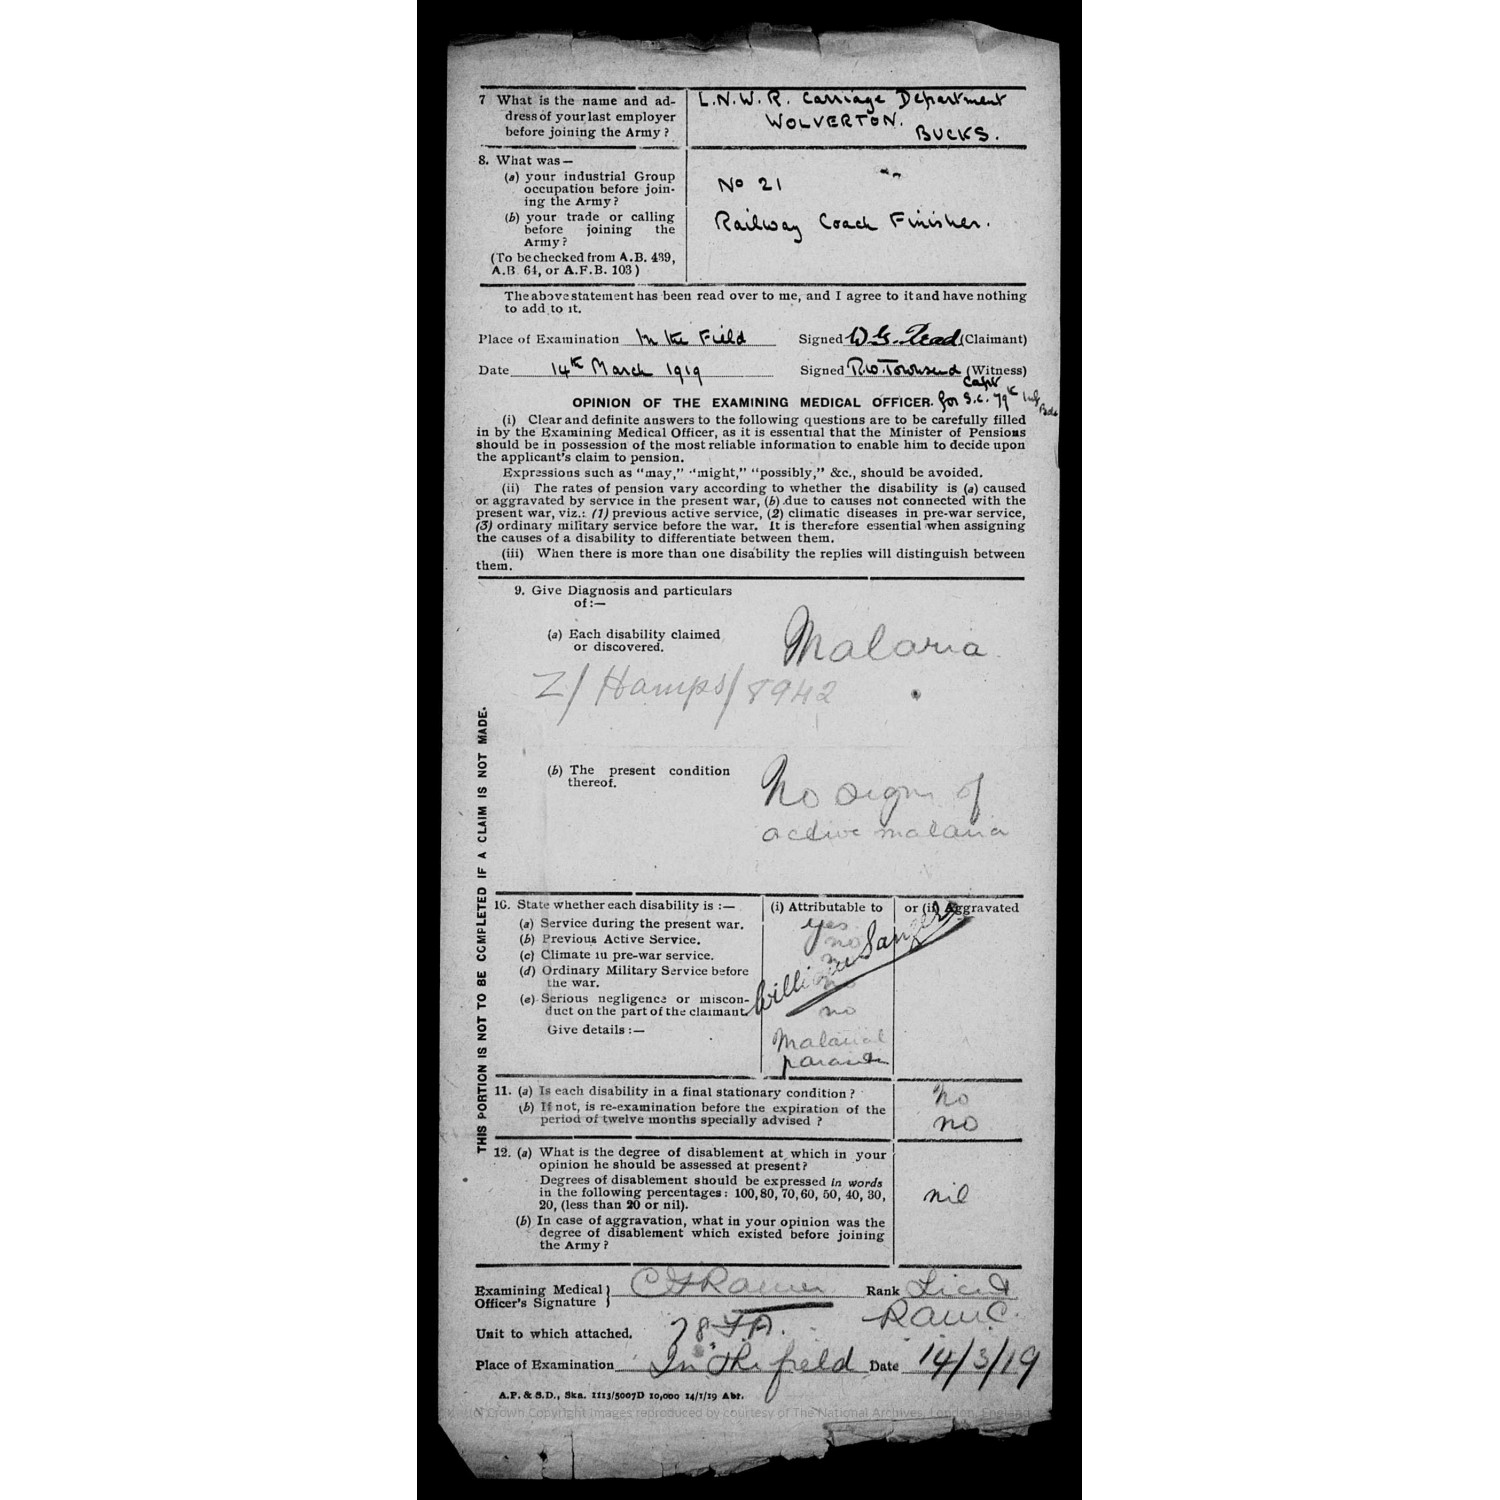 7 What is the name and ad-
dress of your last employer
before joining the Army?
L.N.W.R. Carriage Department
WOLVERTON.
BUCKS.
8. What was—
(a) your industrial Group
occupation before join-
ing the Army?
No 21
(b) your trade or calling
before joining the
Army?
Railway Coach Finisher.
(To be checked from A.B. 439,
A.B. 64, or A.F.B. 103)
The above statement has been read over to me, and I agree to it and have nothing
to add to it.
Place of Examination In the Field Signed W.G. (Claimant)
Date 14th March 1919 Signed R.W. Townsend (Witness)
Capt
for S.C. 79th Inf Bde
OPINION OF THE EXAMINING MEDICAL OFFICER.
(i) Clear and definite answers to the following questions are to be carefully filled
in by the Examining Medical Officer, as it is essential that the Minister of Pensions
should be in possession of the most reliable information to enable him to decide upon
the applicant's claim to pension.
Expressions such as "may," "might," "possibly," &c., should be avoided.
(ii) The rates of pension vary according to whether the disability is (a) caused
or aggravated by service in the present war, (b) due to causes not connected with the
present war, viz.: (1) previous active service, (2) climatic diseases in pre-war service,
(3) ordinary military service before the war. It is therefore essential when assigning
the causes of a disability to differentiate between them.
(iii) When there is more than one disability the replies will distinguish between
them.
THIS PORTION IS NOT TO BE COMPLETED IF A CLAIM IS NOT MADE.
9. Give Diagnosis and particulars
of:—
(a) Each disability claimed
or discovered.
Malaria
Z/Hamps/8942
(b) The present condition
thereof.
No signs of
active malaria
10. State whether each disability is :—
(i) Attributable to
or (ii) Aggravated
(a) Service during the present war.
yes
(b) Previous Active Service.
no
(c) Climate in pre-war service.
no
(d) Ordinary Military Service before
the war.
no
(e) Serious negligence or miscon-
duct on the part of the claimant.
no
William Sanger
Give details :—
Malarial
parasite
11. (a) Is each disability in a final stationary condition ?
No
(b) If not, is re-examination before the expiration of the
period of twelve months specially advised ?
no
12. (a) What is the degree of disablement at which in your
opinion he should be assessed at present?
Degrees of disablement should be expressed in words
in the following percentages: 100, 80, 70, 60, 50, 40, 30,
20, (less than 20 or nil).
nil
(b) In case of aggravation, what in your opinion was the
degree of disablement which existed before joining
the Army ?
Examining Medical
Officer's Signature
Rank Lieut
RAMC.
Unit to which attached. 78 F.A.
Place of Examination In the field Date 14/3/19
A.P. & S.D., Ska. 1113/5007D 10,000 14/1/19 Abt.
Crown Copyright Images reproduced by courtesy of The National Archives, London, England